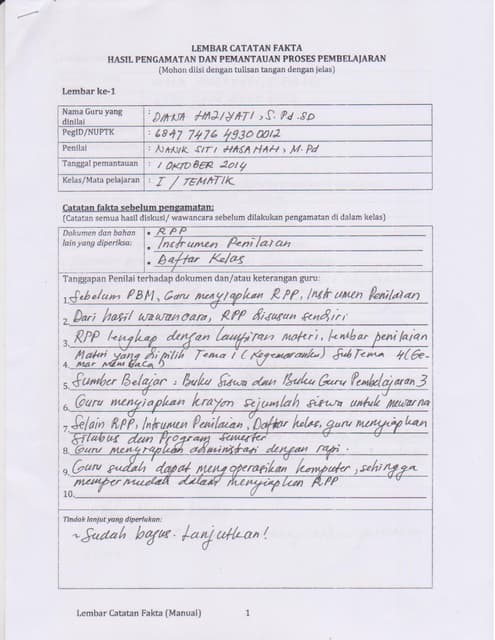 LEMBAR CATATAN FAKTA
HASIL PENGAMATAN DAN PEMANTAUAN PROSES PEMBELAJARAN
(Mohon diisi dengan tulisan tangan dengan jelas)
Lembar ke-1
Nama Guru yang dinilai : DIANA HADIYATI, S.Pd.SD
PegID/NUPTK : 6847 7476 4930 0012
Penilai : NANIK SITI HASANAH, M.Pd
Tanggal pemantauan : 1 OKTOBER 2014
Kelas/Mata pelajaran : I / TEMATIK
Catatan fakta sebelum pengamatan:
(Catatan semua hasil diskusi/ wawancara sebelum dilakukan pengamatan di dalam kelas)
Dokumen dan bahan lain yang diperiksa: • RPP
• Instrumen Penilaian
• Daftar Kelas
Tanggapan Penilai terhadap dokumen dan/atau keterangan guru:
1. Sebelum PBM, Guru menyiapkan RPP, Instrumen Penilaian
2. Dari hasil wawancara, RPP disusun sendiri
3. RPP lengkap dengan lampiran materi, lembar penilaian
4. Materi yang dipilih Tema 1 (Kegemaranku) SubTema 4 (Ge-
mar membaca)
5. Sumber Belajar : Buku Siswa dan Buku Guru Pembelajaran 3
6. Guru menyiapkan krayon sejumlah siswa untuk mewarna
7. Selain RPP, Intrumen Penilaian, Daftar kelas, guru menyiapkan
Silabus dan Program semester
8. Guru menyiapkan administrasi dengan rapi.
9. Guru sudah dapat mengoperasikan komputer, sehingga
mempermudah dalam menyiapkan RPP
10.
Tindak lanjut yang diperlukan:
~ Sudah bagus. Lanjutkan!
Lembar Catatan Fakta (Manual) 1